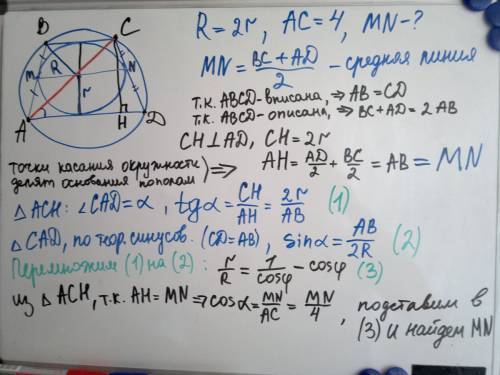 B
C
R
M
N
r
A
H
D
R = 2r, AC = 4, MN - ?
MN = (BC + AD)/2 - средная линия
т.к. ABCD - вписана, ⇒ AB = CD
т.к. ABCD - описана, ⇒ BC + AD = 2 AB
CH ⊥ AD, CH = 2r
точки касания окружности
делят основания пополам) ⇒ AH = AD/2 + BC/2 = AB = MN
△ ACH: ∠CAD = α, tgα = CH/AH = 2r/AB (1)
△ CAD, по теор. синусов. (CD = AB), sinα = AB/2R (2)
Перемножим (1) на (2): r/R = 1/cosφ - cosφ (3)
из △ ACH, т.к. AH = MN ⇒ cosα = MN/AC = MN/4, подставим в
(3) и найдем MN